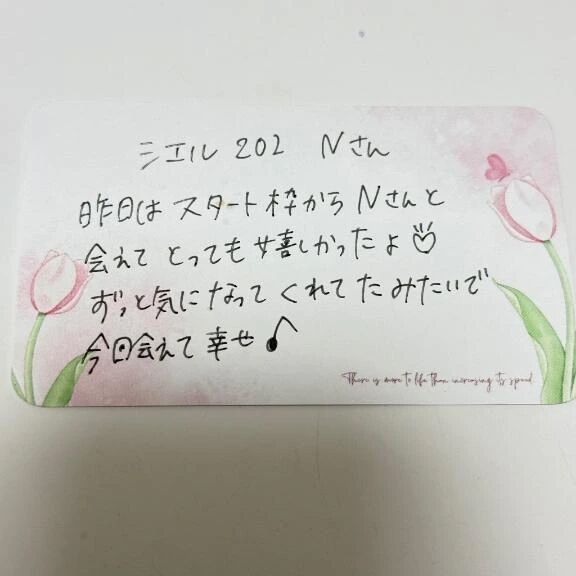 シエル 202 Nさん
昨日は スタート枠から Nさんと
会えて とっても 嬉しかったよ♡
ずっと気になって くれてたみたいで
今回会えて 幸せ♪
There is more to life than increasing its speed